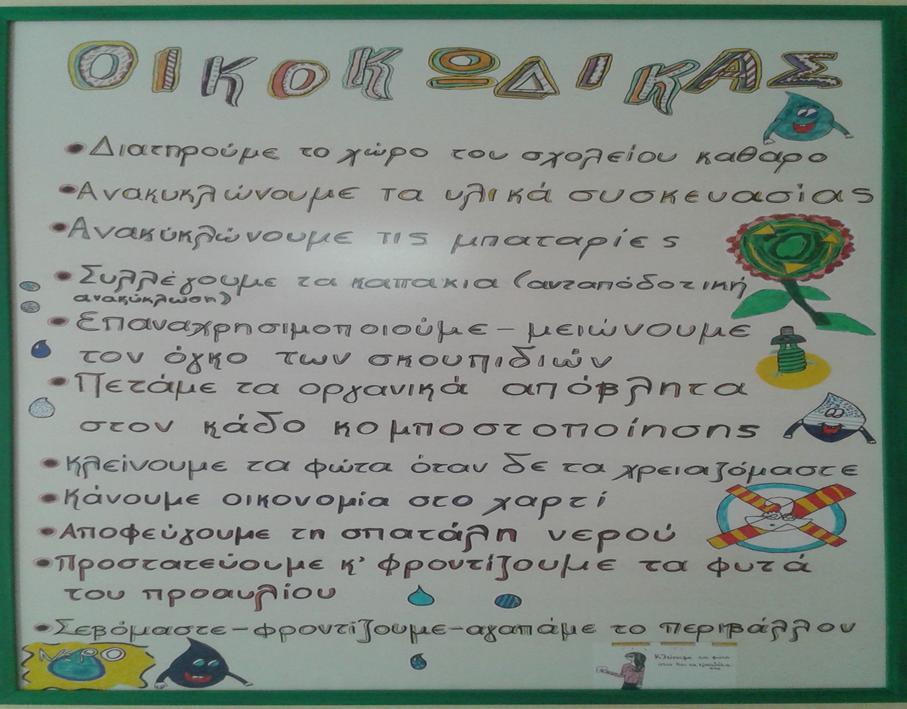 ΟΙΚΟΚΩΔΙΚΑΣ
• Διατηρούμε το χώρο του σχολείου καθαρο
• Ανακυκλώνουμε τα υλικά συσκευασίας
• Ανακύκλώνουμε τις μπαταρίες
• Συλλέγουμε τα καπακια (ανταπόδοτική
ανακύκλωση)
• Επαναχρησιμοποιούμε - μειώνουμε
τον όγκο των σκουπιδιών
• Πετάμε τα οργανικά απόβλητα
στον κάδο κομποστοποίησης
• Κλείνουμε τα φώτα όταν δε τα χρειαζόμαστε
• Κάνουμε οικονομία στο χαρτί
• Αποφεύγουμε τη σπατάλη νερού
• Προστατεύουμε κ' φροντίζουμε τα φυτά
του προαυλίου
• Σεβόμαστε - φροντίζουμε - αγαπάμε το περιβάλλον
ΝΕΡΟ
Κλείνουμε τα φώτα